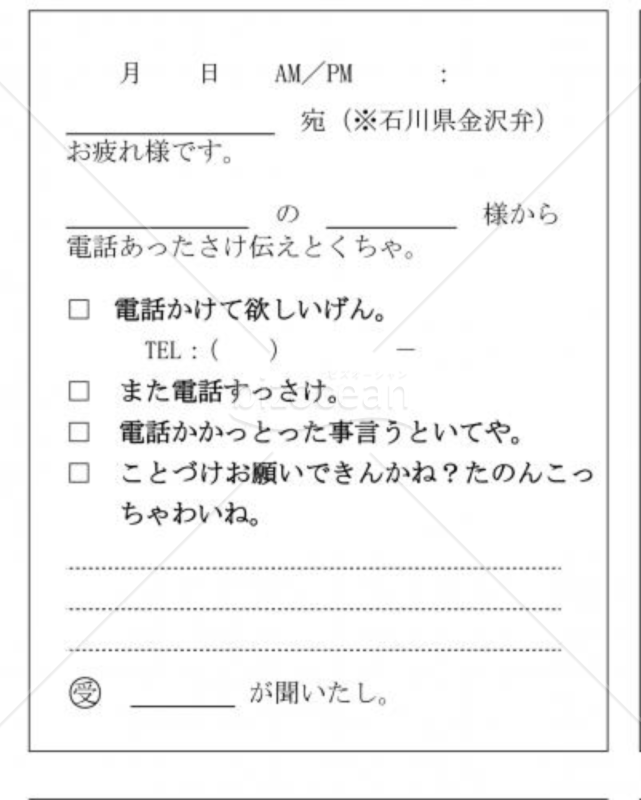 月 日 AM／PM :
宛（※石川県金沢弁）
お疲れ様です。
の 様から
電話あったさけ伝えとくちゃ。
□ 電話かけて欲しいげん。
TEL：( ) －
□ また電話すっさけ。
□ 電話かかっとった事言うといてや。
□ ことづけお願いできんかね？たのんこっ
ちゃわいね。
㊤受 が聞いたし。
bizocean